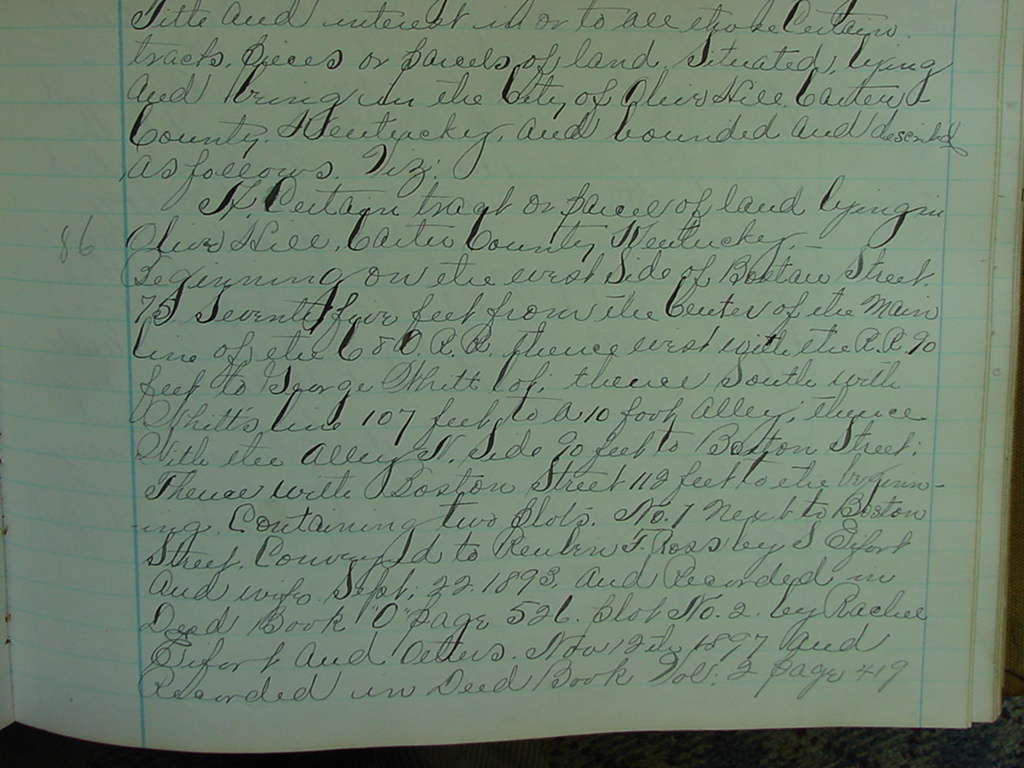 Title and interest in or to all those Certain
tracts, pieces or parcels of land, Situated, lying
and being in the City of Olive Hill, Carter
County, Kentucky, and bounded and described
as follows. Viz:
A Certain tract or parcel of land lying in
86
Olive Hill, Carter County, Kentucky, –
Beginning on the west Side of Bostan Street.
75 Seventy five feet from the Center of the Main
line of the C & O. R. R. thence west with the R. R. 90
feet to George Whitt lot; thence South with
Whitts line 107 feet to a 10 foot alley; thence
With the alley N. Side 90 feet to Boston Street;
Thence with Boston Street 112 feet to the beginn-
-ing. Containing two plots. No. 1 Next to Boston
Street. Conveyed to Reuben F. Ross by S Eifort
and wife Sept. 22. 1893. and Recorded in
Deed Book "O" page 526. plot No. 2. by Rachel
Eifort and others. Nov 12th 1897 and
Recorded in Deed Book Vol: 2 page 419